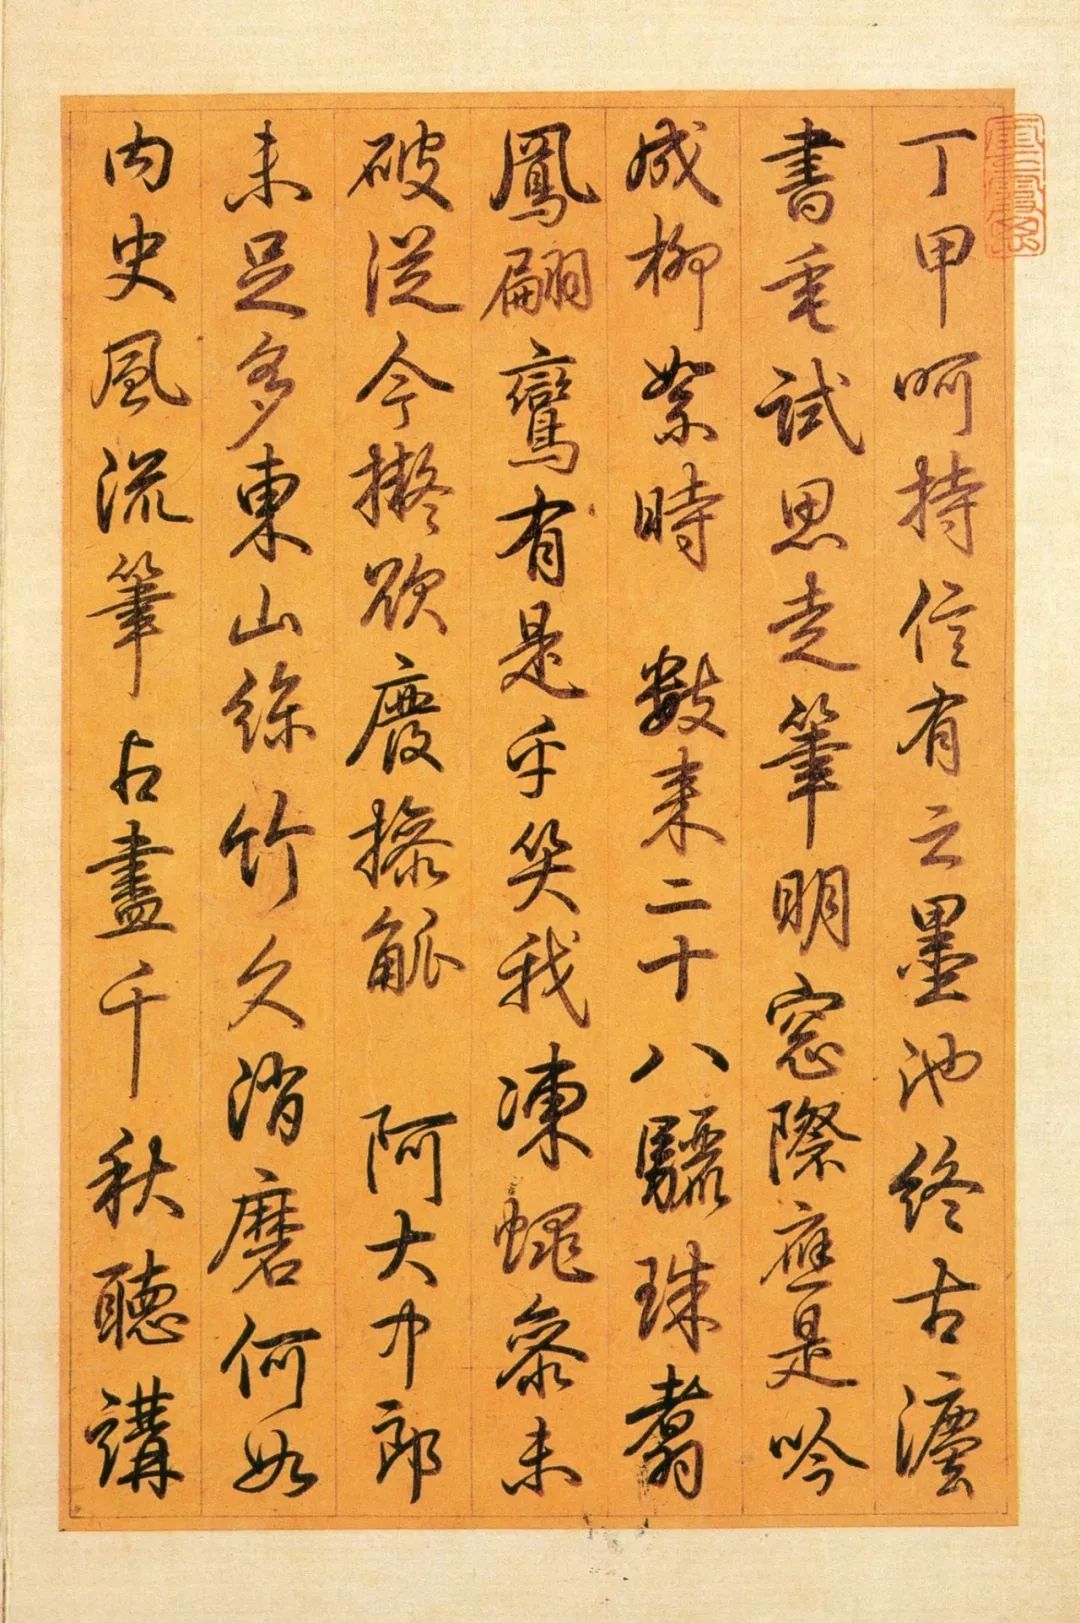 丁甲呵持信有之墨池終古灋
書垂試思走筆明窓際應是吟
成柳絮時 數來二十八驪珠翥
鳳翩鸞有是乎笑我凍蠅參未
破從今擬欲廢操觚 阿大中郎
未足多東山絲竹久消磨何如
内史風流筆占盡千秋聽講